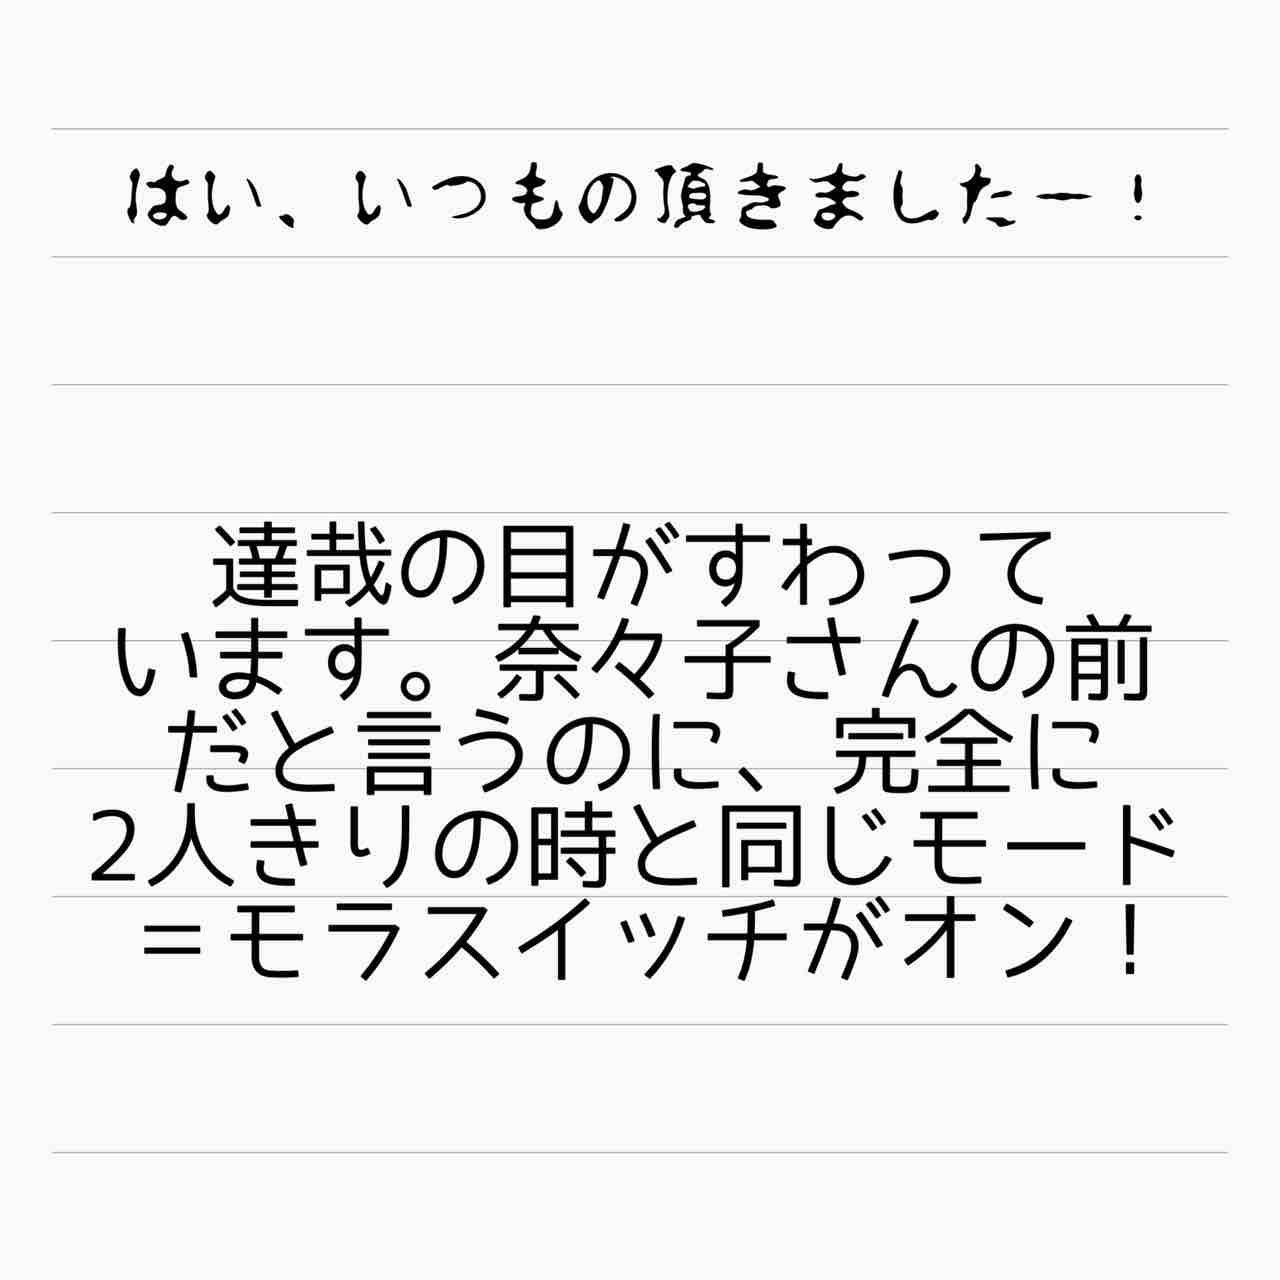 はい、いつもの頂きましたー！
達哉の目がすわって
います。奈々子さんの前
だと言うのに、完全に
2人きりの時と同じモード
＝モラスイッチがオン！